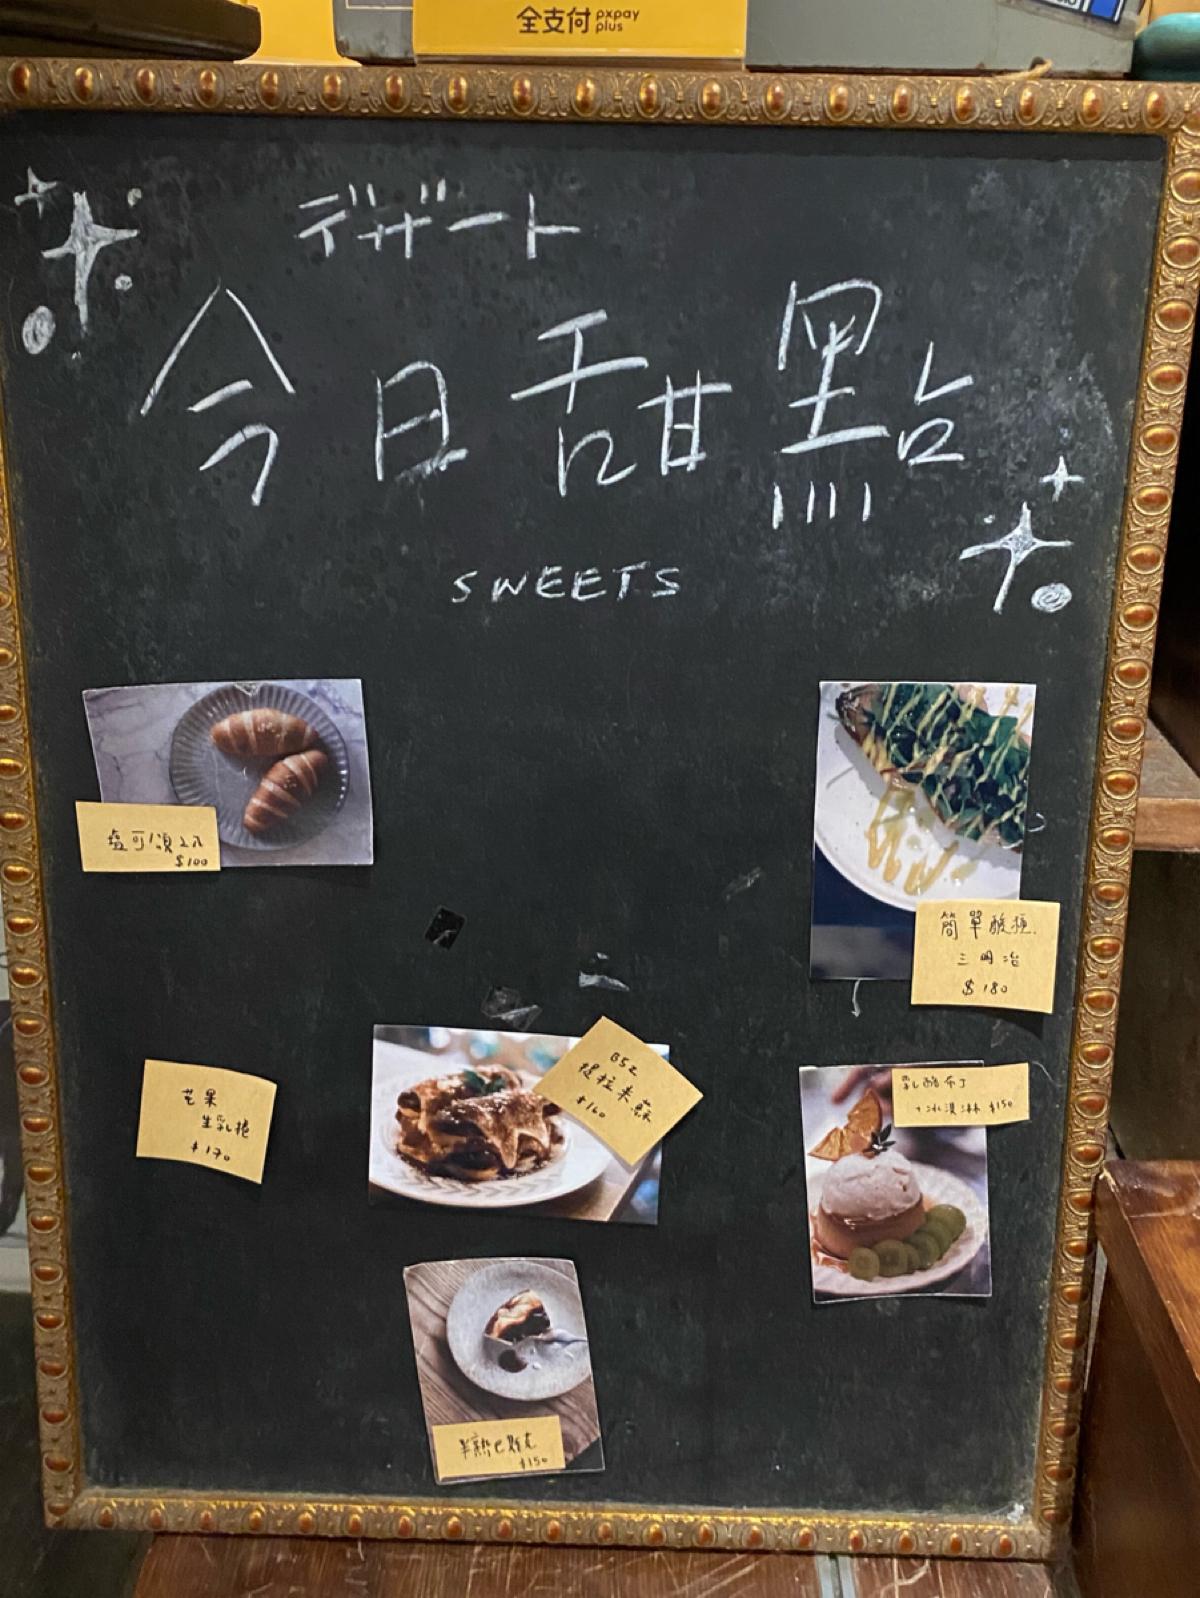 全支付 pxpay plus
デザート
今日甜點
SWEETS
塩可頌2入
$100
簡單酸種
三明治
$180
芒果
生乳捲
$170
B52
提拉米蘇
$160
乳酪布丁
+冰淇淋 $150
半熟巴斯克
$150